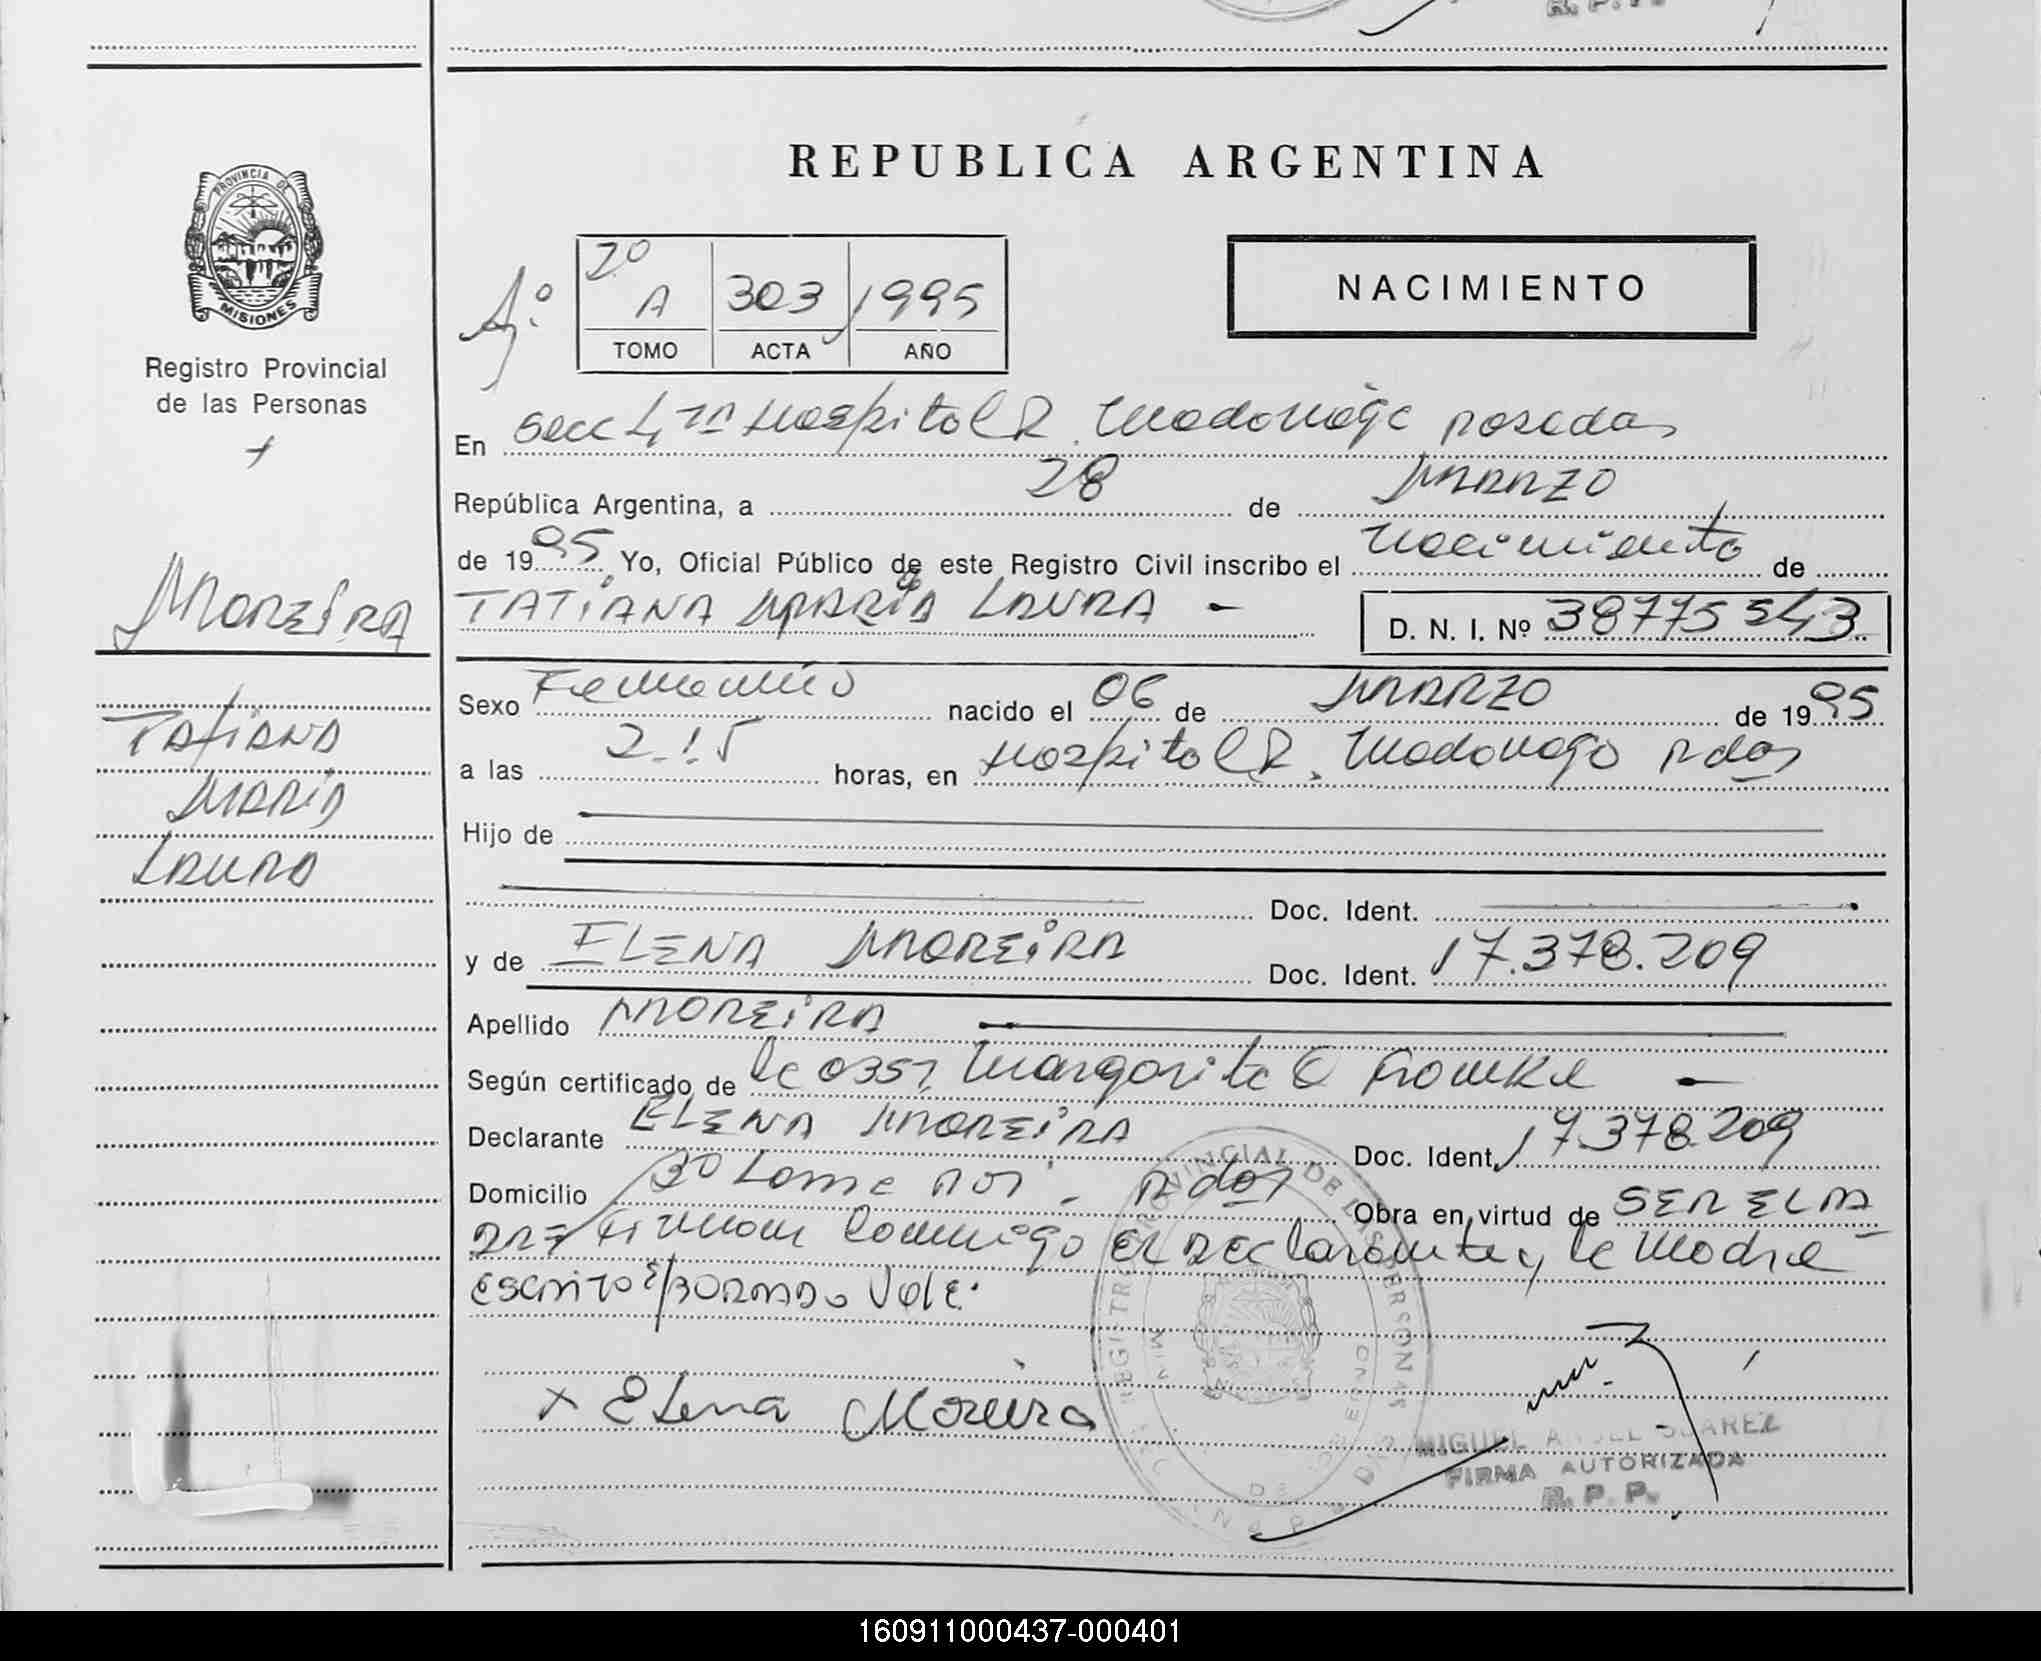 REPUBLICA ARGENTINA
PROVINCIA DE
MISIONES
Registro Provincial
de las Personas
2º
A 303 1995
TOMO ACTA AÑO
NACIMIENTO
En Secc 4ta Hospital R. Madariaga Posadas
República Argentina, a 28 de MARZO
de 1995 Yo, Oficial Público de este Registro Civil inscribo el Nacimiento de
TATIANA MARIA LAURA - D. N. I. Nº 38775543
MOREIRA
Tatiana
MARIA
LAURA
Sexo Femenino nacido el 06 de MARZO de 1995
a las 2.15 horas, en Hospital R. Madariaga Pdas
Hijo de
Doc. Ident.
y de ELENA MOREIRA Doc. Ident. 17.378.209
Apellido MOREIRA
Según certificado de la Margarita
Declarante ELENA MOREIRA Doc. Ident. 17.378.209
Domicilio Pdas Obra en virtud de SER EL LA
firman conmigo el Declarante y la Madre
ESCRITO S/BORRADO Vale.
x Elena Moreira
REGISTRO PROVINCIAL DE LAS PERSONAS
MIGUEL ANGEL SUAREZ
FIRMA AUTORIZADA
R. P. P.
160911000437-000401